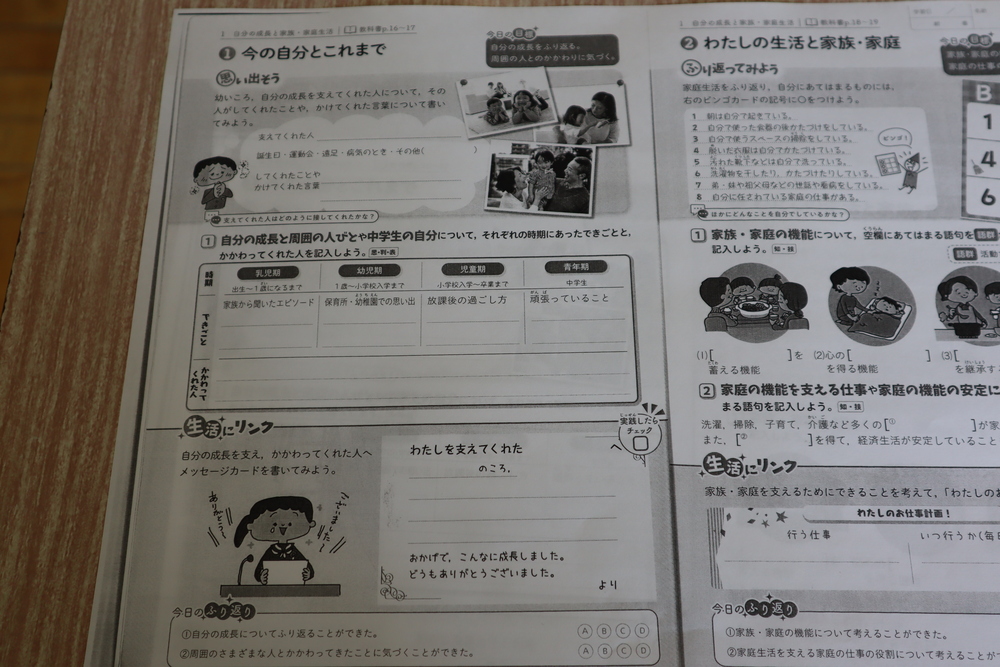 1 自分の成長と家族・家庭生活 教科書p.16~17
1 今の自分とこれまで
今日の目標
自分の成長をふり返る。
周囲の人とのかかわりに気づく。
思い出そう
幼いころ、自分の成長を支えてくれた人について、その
人がしてくれたことや、かけてくれた言葉について書い
てみよう。
支えてくれた人
誕生日・運動会・遠足・病気のとき・その他( )
してくれたことや
かけてくれた言葉
支えてくれた人はどのように接してくれたかな?
1 自分の成長と周囲の人びとや中学生の自分について、それぞれの時期にあったできごとと、
かかわってくれた人を記入しよう。 思・判・表
時期
乳児期
出生~1歳になるまで
幼児期
1歳~小学校入学まで
児童期
小学校入学~卒業まで
青年期
中学生
できごと
家族から聞いたエピソード
保育所・幼稚園での思い出
放課後の過ごし方
頑張っていること
かかわってくれた人
生活にリンク
実践したらチェック
自分の成長を支え、かかわってくれた人へ
メッセージカードを書いてみよう。
ありがとう
ございました
わたしを支えてくれた へ
のころ、
おかげで、こんなに成長しました。
どうもありがとうございました。
より
今日のふり返り
①自分の成長についてふり返ることができた。 A B C D
②周囲のさまざまな人とかかわってきたことに気づくことができた。 A B C D
1 自分の成長と家族・家庭生活 教科書p.18~19
2 わたしの生活と家族・家庭
今日の目標
家族・家庭の
家庭の仕事の
ふり返ってみよう
家庭生活をふり返り、自分にあてはまるものには、
右のビンゴカードの記号に○をつけよう。
1 朝は自分で起きている。
2 自分で使った食器の後かたづけをしている。
3 自分で使うスペースの掃除をしている。
4 脱いだ衣服は自分でかたづけている。
5 汚れた靴下などは自分で洗っている。
6 洗濯物を干したり、かたづけたりしている。
7 弟・妹や祖父母などの世話や看病をしている。
8 自分に任されている家庭の仕事がある。
ビンゴ!
B
1
4
6
ほかにどんなことを自分でしているかな?
1 家族・家庭の機能について、空欄にあてはまる語句を語群
記入しよう。 知・技
語群 活動
(1)[ ]を
蓄える機能
(2)心の[ ]
を得る機能
(3)[
を継承す
2 家庭の機能を支える仕事や家庭の機能の安定に
まる語句を記入しよう。 知・技
洗濯、掃除、子育て、介護など多くの[① ]が家
また、[② ]を得て、経済生活が安定していること
生活にリンク
家族・家庭を支えるためにできることを考えて、「わたしのお
わたしのお仕事計画!
行う仕事
いつ行うか(毎日
今日のふり返り
①家族・家庭の機能について考えることができた。
②家庭生活を支える家庭の仕事の役割について考えることが